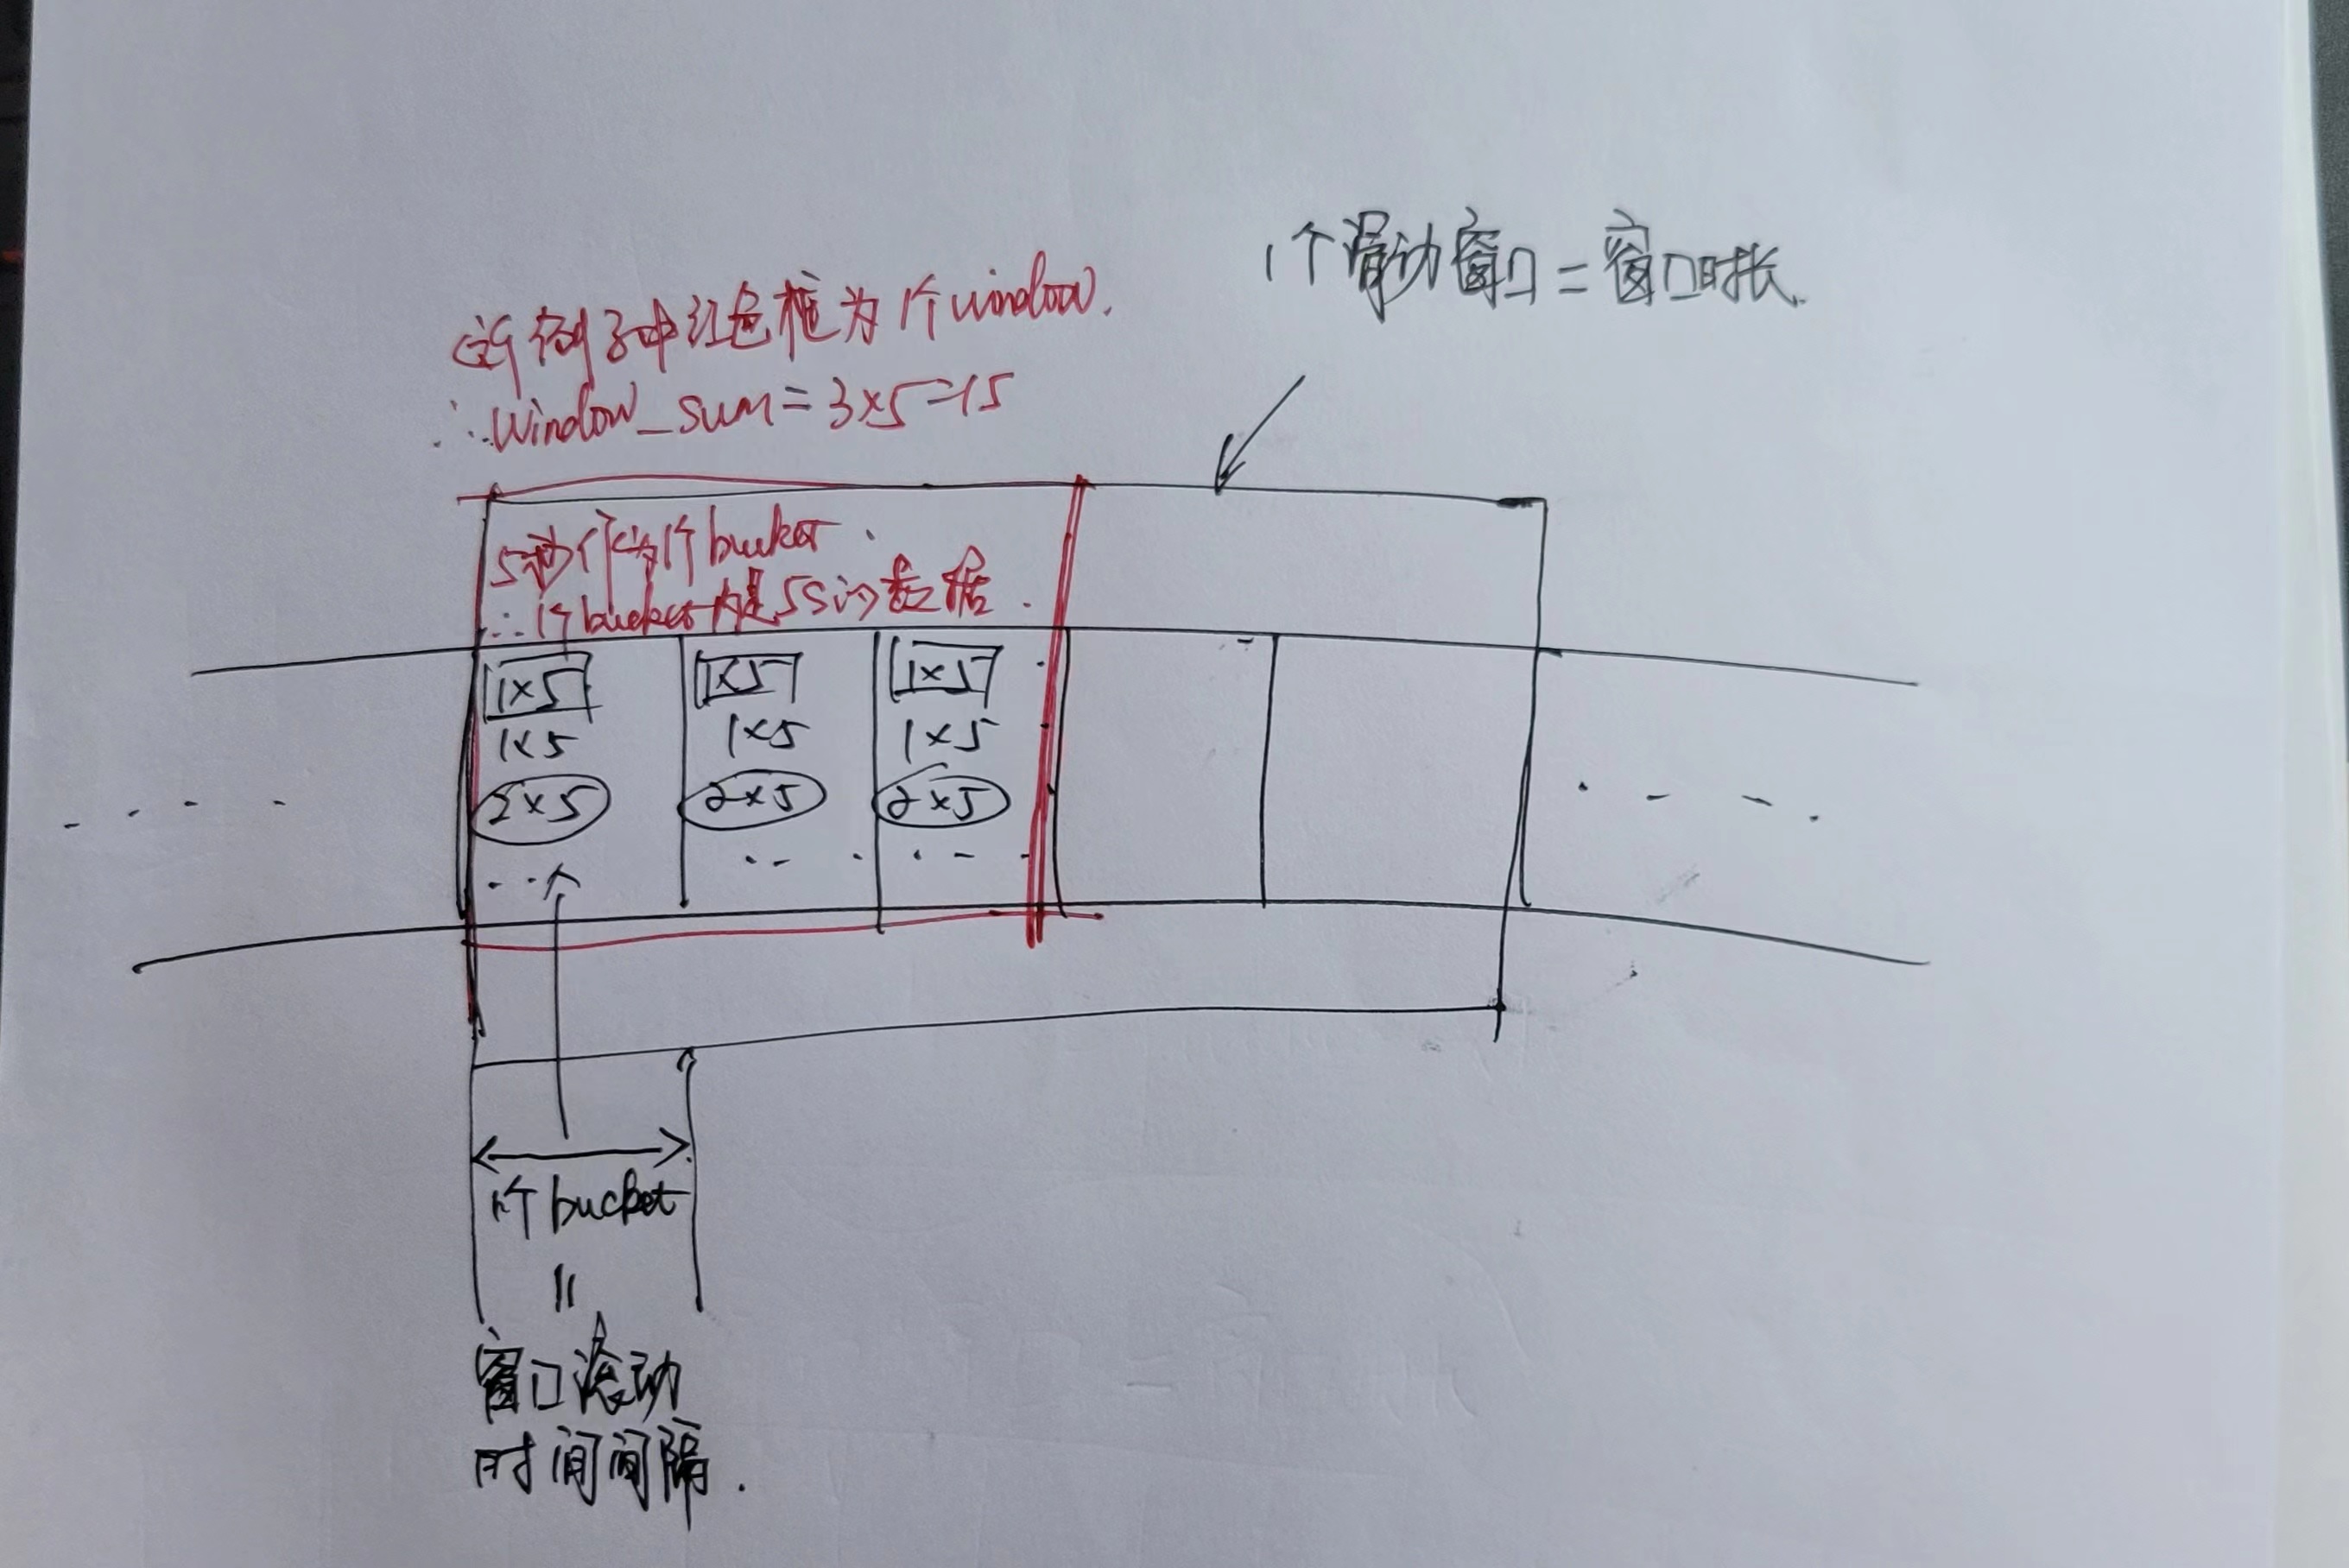 1个滑动窗口=窗口时长.
这例子中红色框为1个window.
∴window_sum=3×5=15
5秒作为1个bucket.
∴1个bucket内是5s的数据.
1×5 1×5 1×5
1×5 1×5 1×5
2×5 2×5 2×5
1个bucket
=
窗口滚动
时间间隔.